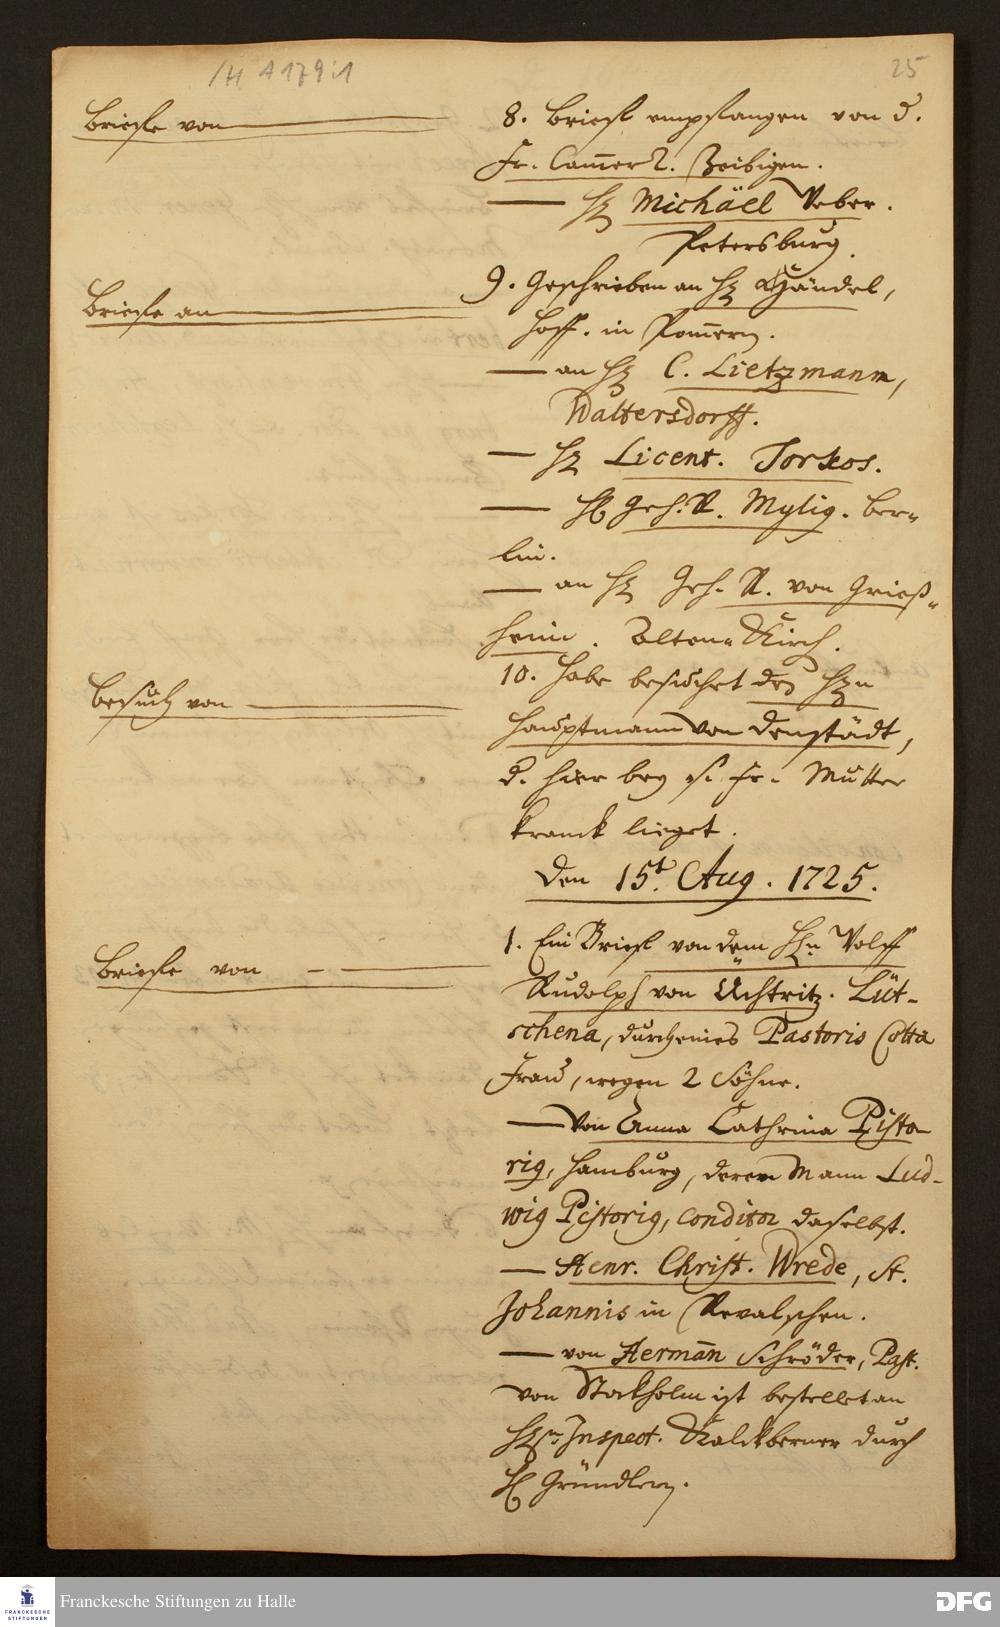 /H A 179:1
25
Briefe von
8. Brief empfangen von d.
Fr. Cam̄erR. Zeibigen.
— H. Michäel Veber.
Petersburg.
Briefe an
9. Geschrieben an H. Händel,
Hoff. in Pom̄ern.
— an H. C. Lietzmann,
Waltersdorff.
— H. Licent. Torkos.
— H. Geh. R. Mylig. Ber-
lin.
— an H. Geh. R. von Grieß-
heim. Alten-Kirch.
Besuch von
10. Habe besuchet den Hn
Hauptmann von Denstädt,
d. hier bey s. Fr. Mutter
kranck lieget.
Den 15t. Aug. 1725.
Briefe von
1. Ein Brief von dem Hn. Wolff
Rudolph von Uchtritz. Lüt-
schena, durch eines Pastoris Cotta
Frau, wegen 2 Söhne.
— Von Anna Cathrina Pisto-
rig, Hamburg, deren Mann Lud-
wig Pistorig, Conditor daselbst.
— Henr. Christ. Wrede, St.
Johannis in Revalschen.
— von Herman̄ Schröder, Past.
von Stockholm ist bestellet an
H. Inspect. Kalckberner durch
H. Gründlern.
Franckesche Stiftungen zu Halle
FRANCKESCHE
STIFTUNGEN
DFG